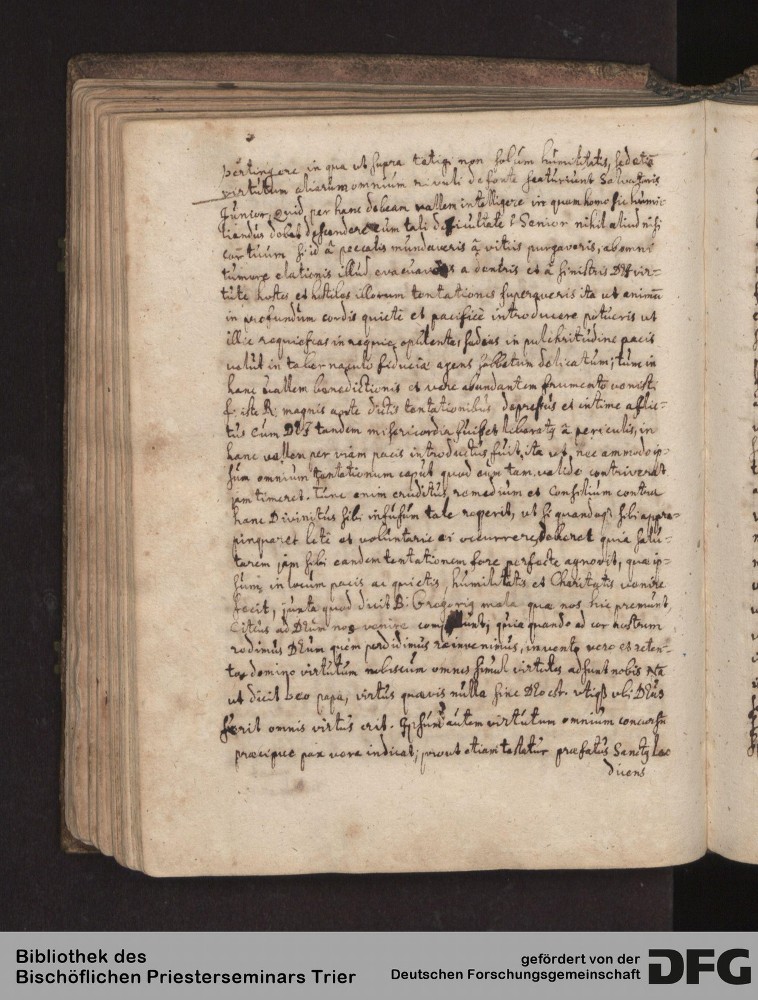 pertingere in qua ut supra tetigi non solum humilitatis, sed etiã
virtutum aliarum omnium rivuli de fonte scaturiunt Salvatoris
Junior. Quid per hanc debeam vallem intelligere in quam homo sic humi-
liandus debet descendere cum tali difficultate? Senior nihil aliud nisi
cor tuum si id â peccatis mundaveris â vitiis purgaveris, ab omni
tumore elationis illud evacuaveris a dextris et â sinistris Dei vir-
tute hostes et hostiles illorum tentationes superaveris ita ut animã
in profundum cordis quietè et pacificè introducere potueris ut
illic requiescas in requie opulenta, sedens in pulchritudine pacis
velut in tabernaculo fiduciæ agens sabbatum delicatum; tunc in
hanc vallem benedictionis et vere abundantem frumento venisti
iste R. magnis ante dictis tentationibus depressus et intime afflic-
tus cum Deus tandem misericordia fuisset liberatus â periculis, in
hanc vallem per viam pacis introductus fuit, ita ut nec ammodo ip-
sum omnium tentationum caput quod eum tam valide contriverat
jam timeret. Tunc enim eruditus remedium et consilium contra
hanc Divinitus sibi infusum tale reperit, ut si quandoq; sibi appro-
pinquaret lete et voluntarie ei occurrere deberet quia salu-
tarem jam sibi eandem tentationem fore perfecte agnovit, quæ ip-
sum in locum pacis ac quietis, humilitatis et Charitatis venire
fecit, juxta quod dicit B: Gregorius mala quæ nos hic premunt,
Citius ad Deum nos venire compellunt, quia quando ad cor nostrum
redimus Deum quem perdidimus reinvenimus, invento vero et reten-
to domino virtutum nobiscum omnes simul virtutes adsunt nobis Na
ut dicit Leo papa, virtus quævis nulla sine Deo est. utiq; ubi Deus
fuerit omnis virtus erit. Ipsum autem virtutum omnium concursũ
præcipue pax vera indicat; prout etiam testatur præfatus Sanctus Leo
dicens
Bibliothek des
Bischöflichen Priesterseminars Trier
gefördert von der
Deutschen Forschungsgemeinschaft
DFG